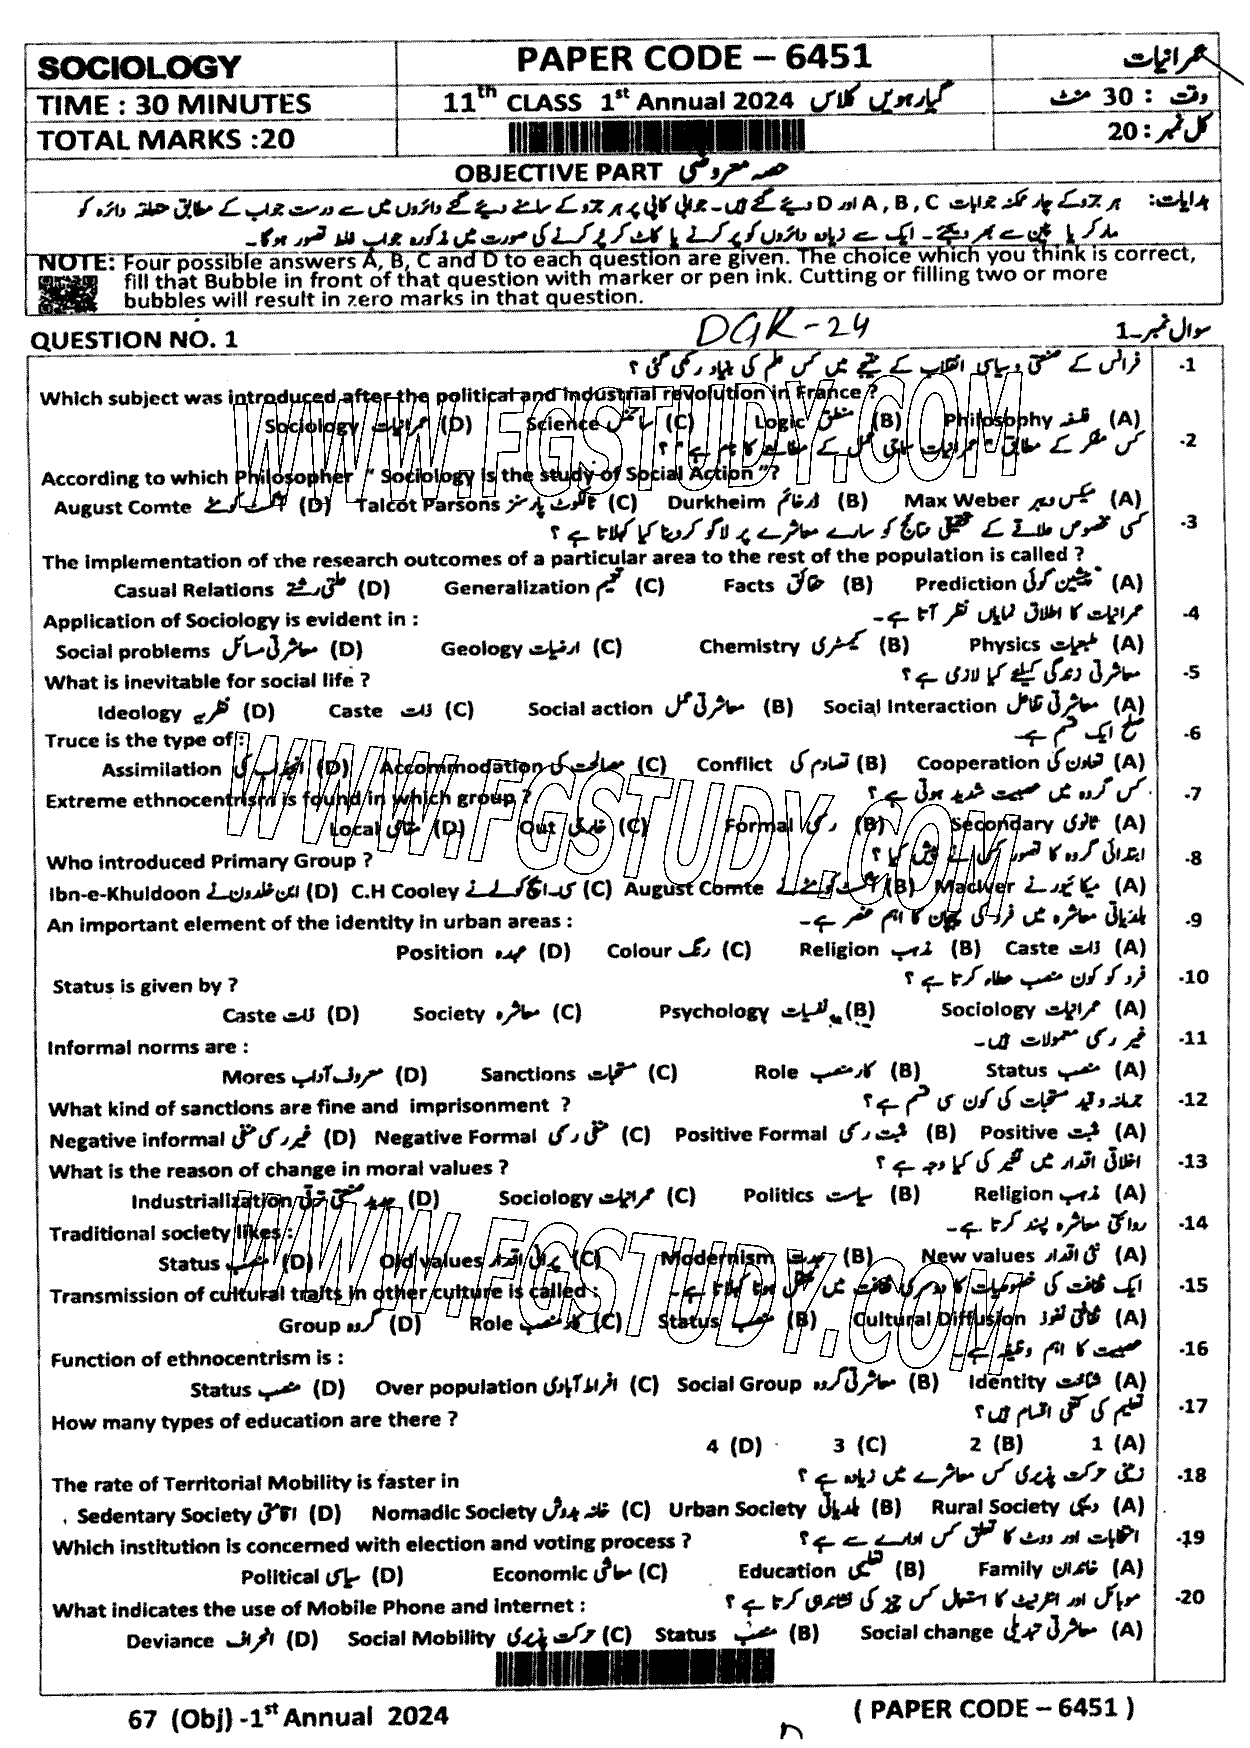 SOCIOLOGY
PAPER CODE – 6451
عمرانیات
TIME : 30 MINUTES
11th CLASS 1st Annual 2024 گیارہویں کلاس
وقت : 30 منٹ
TOTAL MARKS :20
کل نمبر : 20
OBJECTIVE PART حصہ معروضی
ہدایات: ہر جزو کے چار ممکنہ جوابات A , B , C اور D دیئے گئے ہیں۔ جوابی کاپی پر ہر جزو کے سامنے دیئے گئے دائروں میں سے درست جواب کے مطابق متعلقہ دائرہ کو
مارکر یا پین سے بھر دیجئے۔ ایک سے زیادہ دائروں کو پُر کرنے یا کاٹ کر پُر کرنے کی صورت میں مذکورہ جواب غلط تصور ہو گا۔
NOTE: Four possible answers A, B, C and D to each question are given. The choice which you think is correct,
fill that Bubble in front of that question with marker or pen ink. Cutting or filling two or more
bubbles will result in zero marks in that question.
QUESTION NO. 1
DGK-24
سوال نمبر۔1
-1 فرانس کے صنعتی و سیاسی انقلاب کے نتیجے میں کس علم کی بنیاد رکھی گئی ؟
Which subject was introduced after the political and industrial revolution in France ?
(A) فلسفہ Philosophy (B) منطق Logic (C) سائنس Science (D) عمرانیات Sociology
-2 کس مفکر کے مطابق " عمرانیات سماجی عمل کے مطالعے کا نام ہے " ؟
According to which Philosopher " Sociology is the study of Social Action "?
(A) میکس ویبر Max Weber (B) ڈرخائم Durkheim (C) ٹالکوٹ پارسنز Talcot Parsons (D) آگسٹ کومٹے August Comte
-3 کسی مخصوص علاقے کے تحقیقی نتائج کو سارے معاشرے پر لاگو کر دینا کیا کہلاتا ہے ؟
The implementation of the research outcomes of a particular area to the rest of the population is called ?
(A) پیشین گوئی Prediction (B) حقائق Facts (C) تعمیم Generalization (D) علتی رشتے Casual Relations
-4 عمرانیات کا اطلاق نمایاں نظر آتا ہے۔
Application of Sociology is evident in :
(A) طبیعیات Physics (B) کیمسٹری Chemistry (C) ارضیات Geology (D) معاشرتی مسائل Social problems
-5 معاشرتی زندگی کیلئے کیا لازمی ہے ؟
What is inevitable for social life ?
(A) معاشرتی تفاعل Social Interaction (B) معاشرتی عمل Social action (C) ذات Caste (D) نظریہ Ideology
-6 صلح ایک قسم ہے۔
Truce is the type of :
(A) تعاون کی Cooperation (B) تصادم کی Conflict (C) مصالحت کی Accommodation (D) انجذاب کی Assimilation
-7 کس گروہ میں عصبیت شدید ہوتی ہے ؟
Extreme ethnocentrism is found in which group ?
(A) ثانوی Secondary (B) رسمی Formal (C) خارجی Out (D) مقامی Local
-8 ابتدائی گروہ کا تصور کس نے پیش کیا ؟
Who introduced Primary Group ?
(A) میکائیور نے MacIver (B) آگسٹ کومٹے نے August Comte (C) سی۔ ایچ کولے نے C.H Cooley (D) ابن خلدون نے Ibn-e-Khuldoon
-9 بلدیاتی معاشرہ میں فرد کی پہچان کا اہم عنصر ہے۔
An important element of the identity in urban areas :
(A) ذات Caste (B) مذہب Religion (C) رنگ Colour (D) عہدہ Position
-10 فرد کو کون منصب عطاء کرتا ہے ؟
Status is given by ?
(A) عمرانیات Sociology (B) نفسیات Psychology (C) معاشرہ Society (D) ذات Caste
-11 غیر رسمی معمولات ہیں۔
Informal norms are :
(A) منصب Status (B) کار منصب Role (C) مستحبات Sanctions (D) معروف آداب Mores
-12 جرمانہ و قید مستحبات کی کون سی قسم ہے ؟
What kind of sanctions are fine and imprisonment ?
(A) مثبت Positive (B) مثبت رسمی Positive Formal (C) منفی رسمی Negative Formal (D) غیر رسمی منفی Negative informal
-13 اخلاقی اقدار میں تغیر کی کیا وجہ ہے ؟
What is the reason of change in moral values ?
(A) مذہب Religion (B) سیاست Politics (C) عمرانیات Sociology (D) جدید صنعتی ترقی Industrialization
-14 روائتی معاشرہ پسند کرتا ہے۔
Traditional society likes :
(A) نئی اقدار New values (B) جدت Modernism (C) پرانی اقدار Old values (D) منصب Status
-15 ایک ثقافت کی خصوصیات کا دوسری ثقافت میں منتقل ہونا کہلاتا ہے۔
Transmission of cultural traits in other culture is called :
(A) ثقافتی نفوذ Cultural Diffusion (B) منصب Status (C) کار منصب Role (D) گروہ Group
-16 عصبیت کا اہم وظیفہ ہے۔
Function of ethnocentrism is :
(A) شناخت Identity (B) معاشرتی گروہ Social Group (C) افراط آبادی Over population (D) منصب Status
-17 تعلیم کی کتنی اقسام ہیں؟
How many types of education are there ?
(A) 1 (B) 2 (C) 3 (D) 4
-18 زمینی حرکت پذیری کس معاشرے میں زیادہ ہے ؟
The rate of Territorial Mobility is faster in
(A) دیہی Rural Society (B) بلدیاتی Urban Society (C) خانہ بدوش Nomadic Society (D) اقامتی Sedentary Society
-19 انتخابات اور ووٹ کا تعلق کس ادارے سے ہے ؟
Which institution is concerned with election and voting process ?
(A) خاندان Family (B) تعلیمی Education (C) معاشی Economic (D) سیاسی Political
-20 موبائل اور انٹرنیٹ کا استعمال کس چیز کی نشاندہی کرتا ہے ؟
What indicates the use of Mobile Phone and internet :
(A) معاشرتی تبدیلی Social change (B) منصب Status (C) حرکت پذیری Social Mobility (D) انحراف Deviance
67 (Obj) -1st Annual 2024
( PAPER CODE – 6451 )
WWW.FGSTUDY.COM
WWW.FGSTUDY.COM
WWW.FGSTUDY.COM